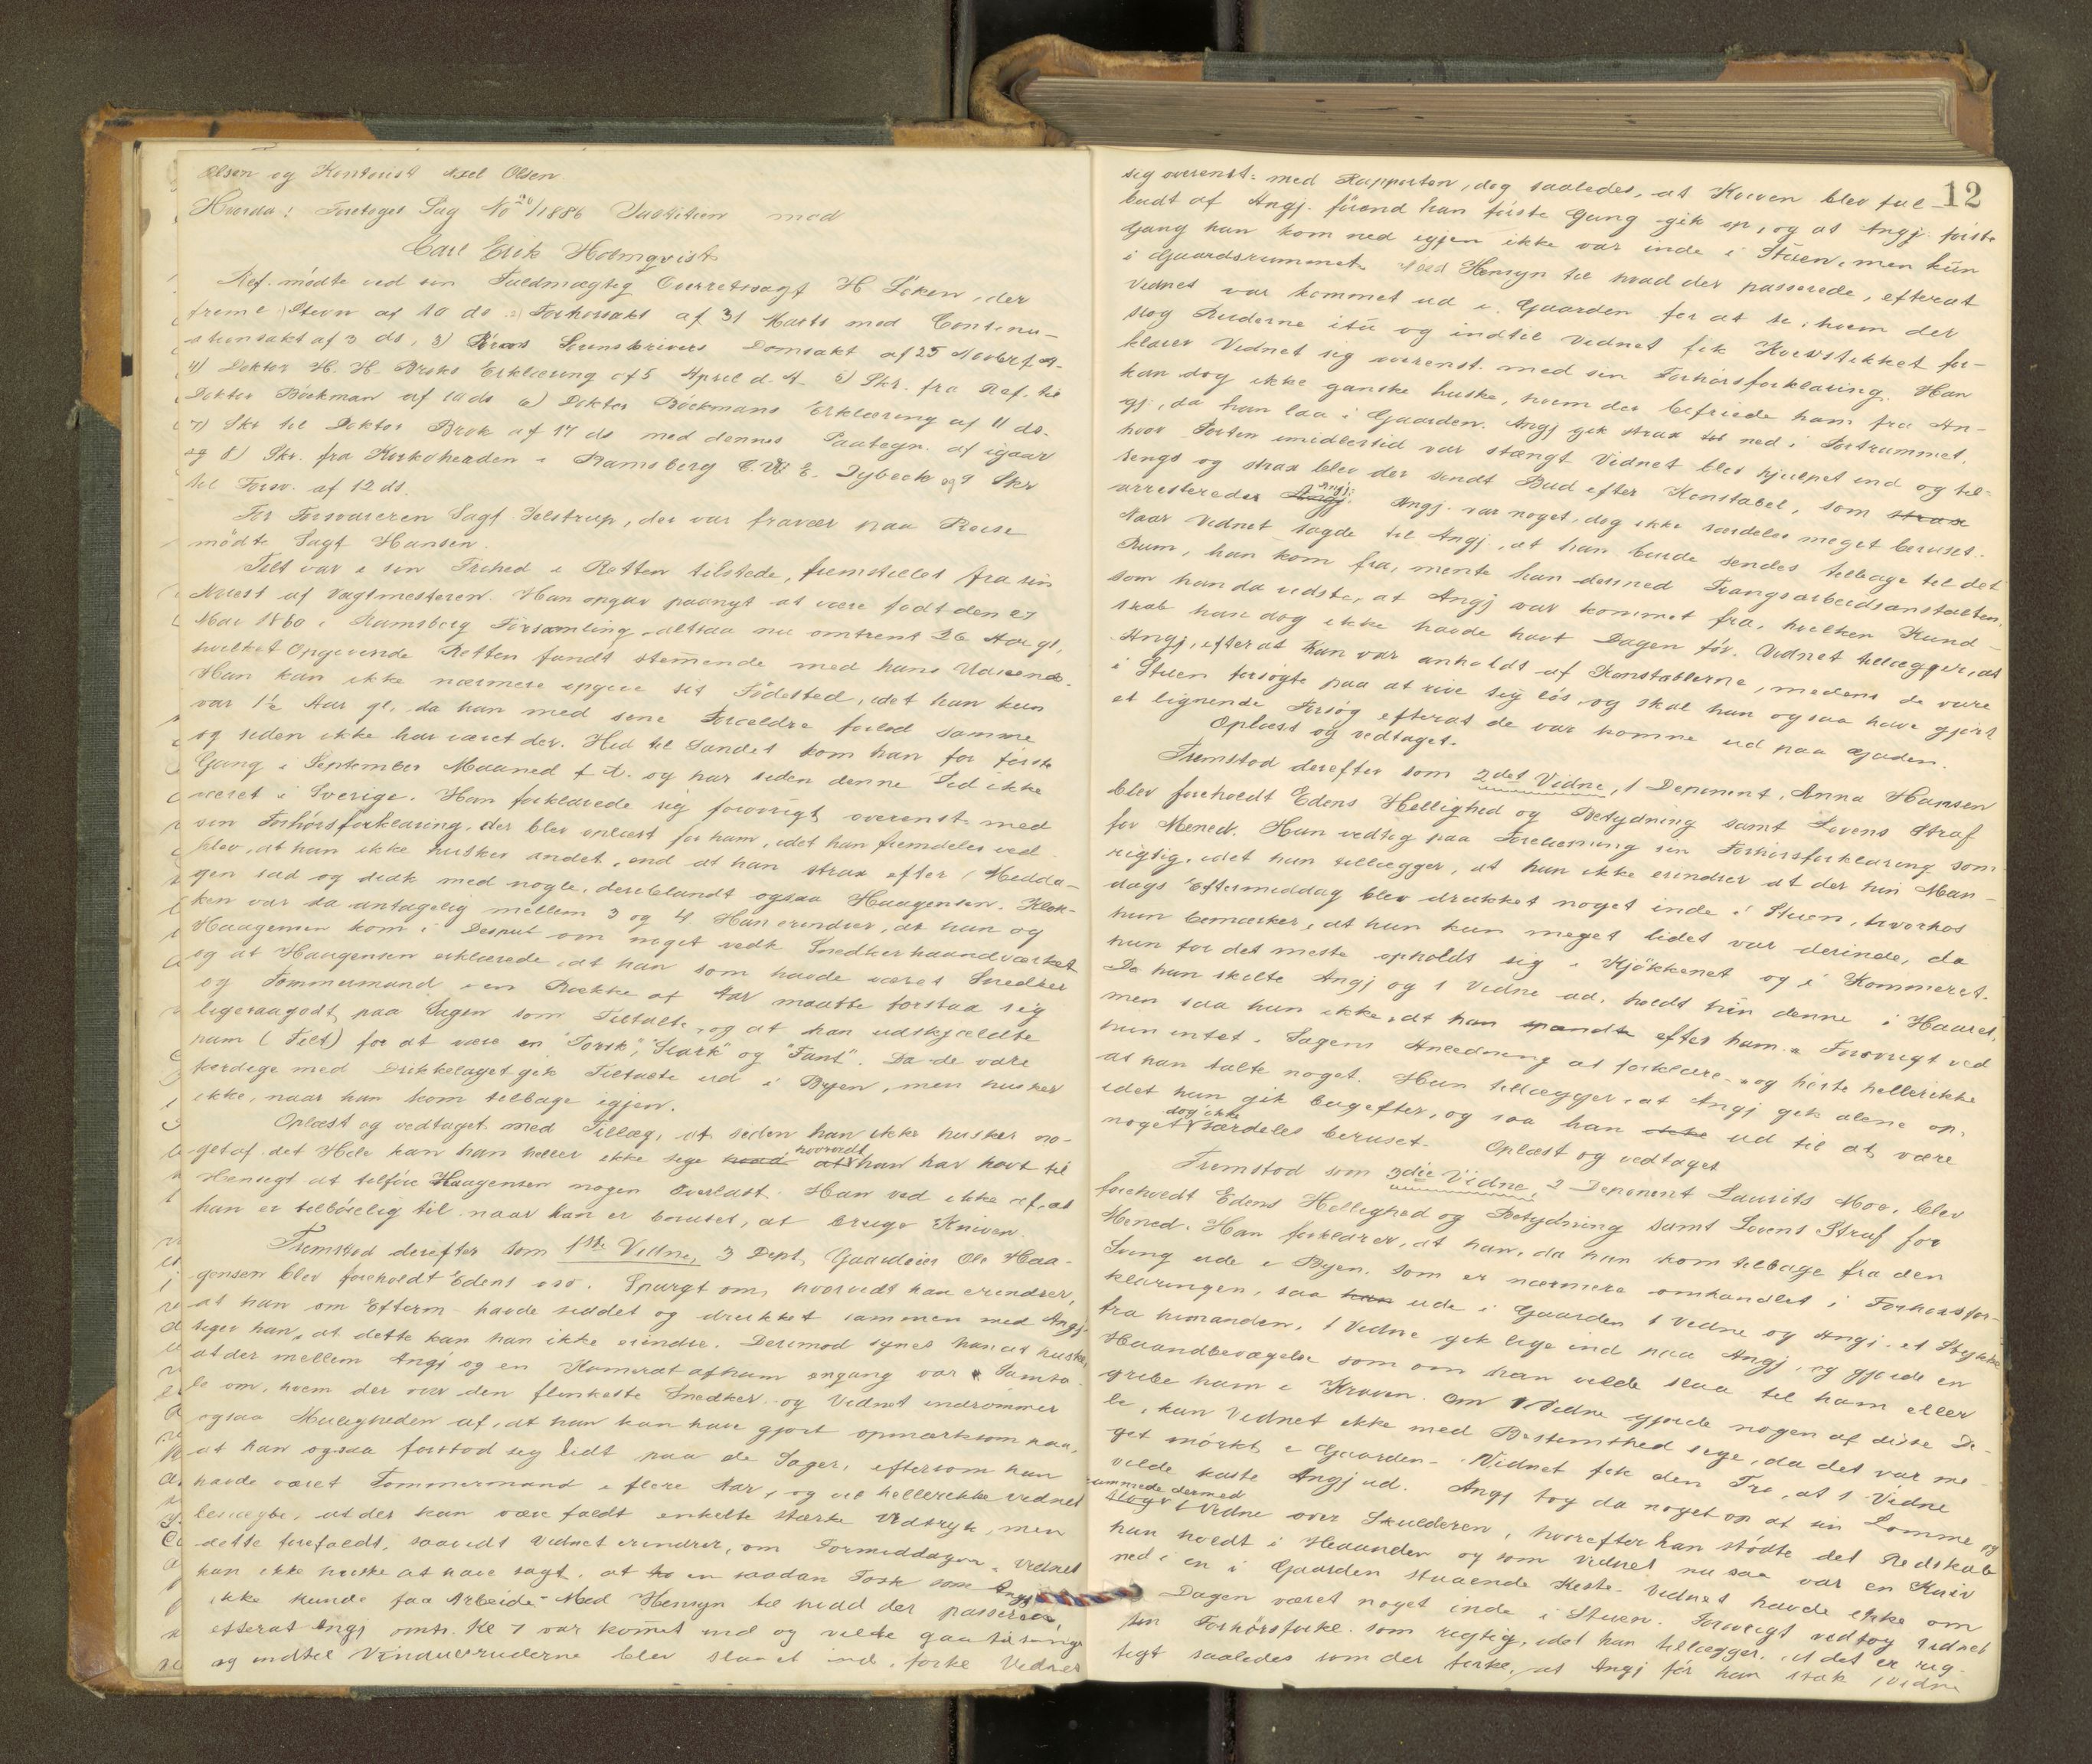 Olsen og Kontorist Axel Olsen
Hvorda: Foretoges Sag No 20/1886 Justitien mod
Carl Erik Holmqvist
Ref. mödte ved sin Fuldmægtig Overretssagf H Löken, der
freml Stevn af 10 ds 2) Forhörsakt af 31 Marts med Continu-
ationsakt af 3 ds, 3) Sorenskrivers Domsakt af 25 Novbr f. A.
4) Doktor H. H. Broks Erklæring af 5 April d. A. 5) Skr. fra Ref. til
Doktor Böckman af 10 ds 6) Doktor Böckmans Erklæring af 11 ds.
7) Skr til Doktor Brok af 17 ds med dennes Paategn. af igaar
og 8) Skr. fra Kyrkoherden i Ramsberg C. W E. Dybeck og 9 Skr
til Forsv. af 12 ds.
For Forsvareren Sagf. Jelstrup, der var fravær paa Reise
mödte Sagf Hansen.
Tilt var i sin Frihed i Retten tilstede, fremstillet fra sin
Arrest af Vagtmesteren. Han opgav paanyt at være född den 27
Mai 1860 i Ramsberg Forsamling altsaa nu omtrent 26 Aar gl.
hvilket Opgivende Retten fandt stemmende med hans Udseende.
Han kan ikke nærmere opgive sit Födested, idet han kun
var 1½ Aar gl. da han med sine Forældre forlod samme
og siden ikke har været der. Hid til Landet kom han for förste
Gang i September Maaned f. A. og har siden denne Tid ikke
været i Sverige. Han forklarede sig forövrigt overenst. med
sin Forhörsforklaring, der blev oplæst for ham, idet han fremdeles ved-
blev, at han ikke husker andet, end at han strax efter Midda-
gen sad og drak med nogle, deriblandt ogsaa Haagensen. Klok-
ken var da antagelig mellem 3 og 4 Han erindrer, at han og
Haagensen kom i Disput om noget vedk Snedkerhaandværket
og at Haagensen erklærede, at han som havde været Snedker
og Tommermand i en Række af Aar maatte forstaa sig
ligesaagodt paa Sagen som Tiltalte, og at han udskjældte
ham (Tilt) for at være en "Torsk", "Stark" og "Fant". Da de vare
færdige med Drikkelaget gik Tiltalte ud i Byen, men husker
ikke, naar han kom tilbage igjen.
Oplæst og vedtaget med Tillæg, at siden han ikke husker no-
get af det Hele kan han heller ikke sige hvad hvorvidt at han har havt til
Hensigt at tilföie Haagensen nogen Overlast. Han ved ikke af, at
han er tilböielig til naar han er beruset, at bruge Kniven.
Fremstod derefter som 1ste Vidne, 3 Dept, Gaardeier Ole Haa-
gensen blev foreholdt Edens oso. Spurgt om, hvorvidt han erindrer,
at han om Efterm. havde siddet og drukket sammen med Angj.
siger han, at dette kan han ikke erindre. Derimod synes han at huske,
at der mellem Angj og en Kamerat af ham engang var Samta-
le om, hvem der var den flinkeste Snedker og Vidnet indrömmer
ogsaa Muligheden af, at han kan have gjort opmærksom paa,
at han ogsaa forstod sig lidt paa de Sager, eftersom han
havde været Tommermand i flere Aar, og vil hellerikke Vidnet
benægte, at der kan være faldt enkelte stærke Udtryk, men
dette forefaldt, saavidt Vidnet erindrer, om Formiddagen. Vidnet
kan ikke huske at have sagt, at en saadan Torsk som Angj
ikke kunde faa Arbeide. Med Hensyn til hvad der passerede
efterat Angj omtr. Kl 7 var kommet ind og vilde gaa tilsengs
og indtil Vinduesruderne blev slaaet ind, forkl Vidnet
12
sig overenst. med Rapporten, dog saaledes, at Kniven blev fal-
budt af Angj. förend han förste Gang gik op, og at Angj. förste
Gang han kom ned igjen ikke var inde i Stuen, men kun
i Gaardsrummet. Med Hensyn til hvad der passerede, efterat
Vidnet var kommet ud i Gaarden for at se, hvem der
slog Ruderne itu og indtil Vidnet fik Knivstikket for-
klarer Vidnet sig overenst. med sin Forhörsforklaring. Han
kan dog ikke ganske huske, hvem der befriede ham fra An-
gj., da han laa i Gaarden. Angj gik strax ned i Portrummet,
hvor Porten imidlertid var stængt Vidnet blev hjulpet ind og til-
sengs og strax blev der sendt Bud efter Konstabel, som strax
arresterede Angj. Angj. Angj. var noget, dog ikke særdeles meget beruset.
Naar Vidnet sagde til Angj., at han burde sendes tilbage til det
Rum, han kom fra, mente han dermed Tvangsarbeidsanstalten,
som han da vidste, at Angj var kommet fra, hvilken Kund-
skab han dog ikke havde havt Dagen för. Vidnet tillægger, at
Angj, efterat han var anholdt af Konstablerne, medens de vare
i Stuen forsögte paa at rive sig lös, og skal han ogsaa have gjort
et lignende Forsög efterat de var komne ud paa Gaden.
Oplæst og vedtaget.
Fremstod derefter som 2det Vidne, 1 Deponent, Anna Hansen
blev foreholdt Edens Hellighed og Betydning samt Lovens Straf
for Mened. Hun vedtog paa Forelæsning sin Forhörsforklaring som
rigtig, idet hun tillægger, at hun ikke erindrer at der hin Man-
dags Eftermiddag blev drukket noget inde i Stuen, hvorhos
hun bemærker, at hun kun meget lidet var derinde, da
hun for det meste opholdt sig i Kjökkenet og i Kammeret.
Da hun skilte Angj og 1 Vidne ad, holdt hun denne i Haaret,
men saa hun ikke, at han spændte efter ham. Forövrigt ved
hun intet i Sagens Anledning at forklare og hörte hellerikke
at han talte noget. Hun tillægger, at Angj gik alene op,
idet hun gik bagefter, og saa han ikke ud til at være
noget dog ikke særdeles beruset. Oplæst og vedtaget
Fremstod som 3die Vidne, 2 Deponent Laurits Moe, blev
foreholdt Edens Hellighed og Betydning samt Lovens Straf for
Mened. Han forklarer, at han, da han kom tilbage fra den
Sving ude i Byen, som er nærmere omhandlet i Forhörsfor-
klaringen, saa han ude i Gaarden 1 Vidne og Angj. et Stykke
fra hinanden. 1 Vidne gik lige ind paa Angj. og gjorde en
Haandbevægelse som om han vilde slaa til ham eller
gribe ham i Kraven. Om 1 Vidne gjorde nogen af disse De-
le, kan Vidnet ikke med Bestemthed sige, da det var me-
get mörkt i Gaarden. Vidnet fik den Tro, at 1 Vidne
vilde kaste Angj ud. Angj tog da noget op af sin Lomme og
rammede dermed
slog 1 Vidne over Skulderen, hvorefter han stödte det Redskab
han holdt i Haanden og som Vidnet nu saa var en Kniv
ned i en i Gaarden staaende Kiste. Vidnet havde ikke om
Dagen været noget inde i Stuen. Forövrigt vedtog Vidnet
sin Forhörsforkl. som rigtig, idet han tillægger, at det er rig-
tigt saaledes som der forkl. at Angj för han stak 1 Vidne